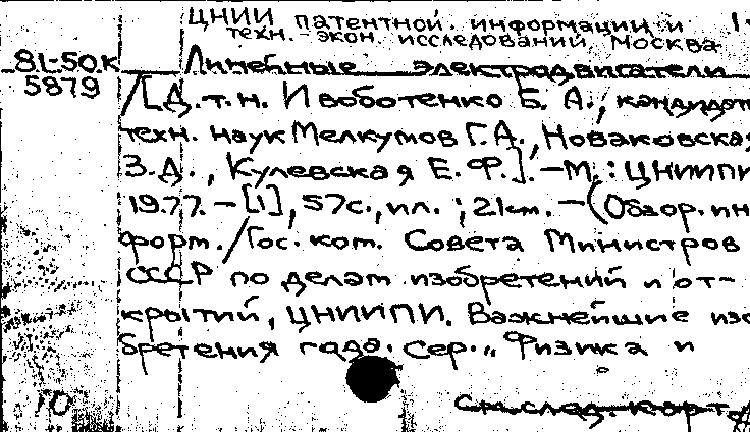 ЦНИИ патентной информации и
техн.-экон. исследований, Москва
81-50к
Линейные электродвигатели
5879
/[Д.т.н. Ивоботенко Б. А., кандидат
техн. наук Мелкумов Г.А., Новаковская
З.Д., Кулевская Е.Ф.].-М.: ЦНИИПИ
1977.-[1], 57с., ил.; 21см.-(Обзор. ин
форм./Гос. ком. Совета Министров
СССР по делам изобретений и от-
крытий, ЦНИИПИ. Важнейшие изо
бретения года. Сер.,, Физика и
10
см. след. карт.